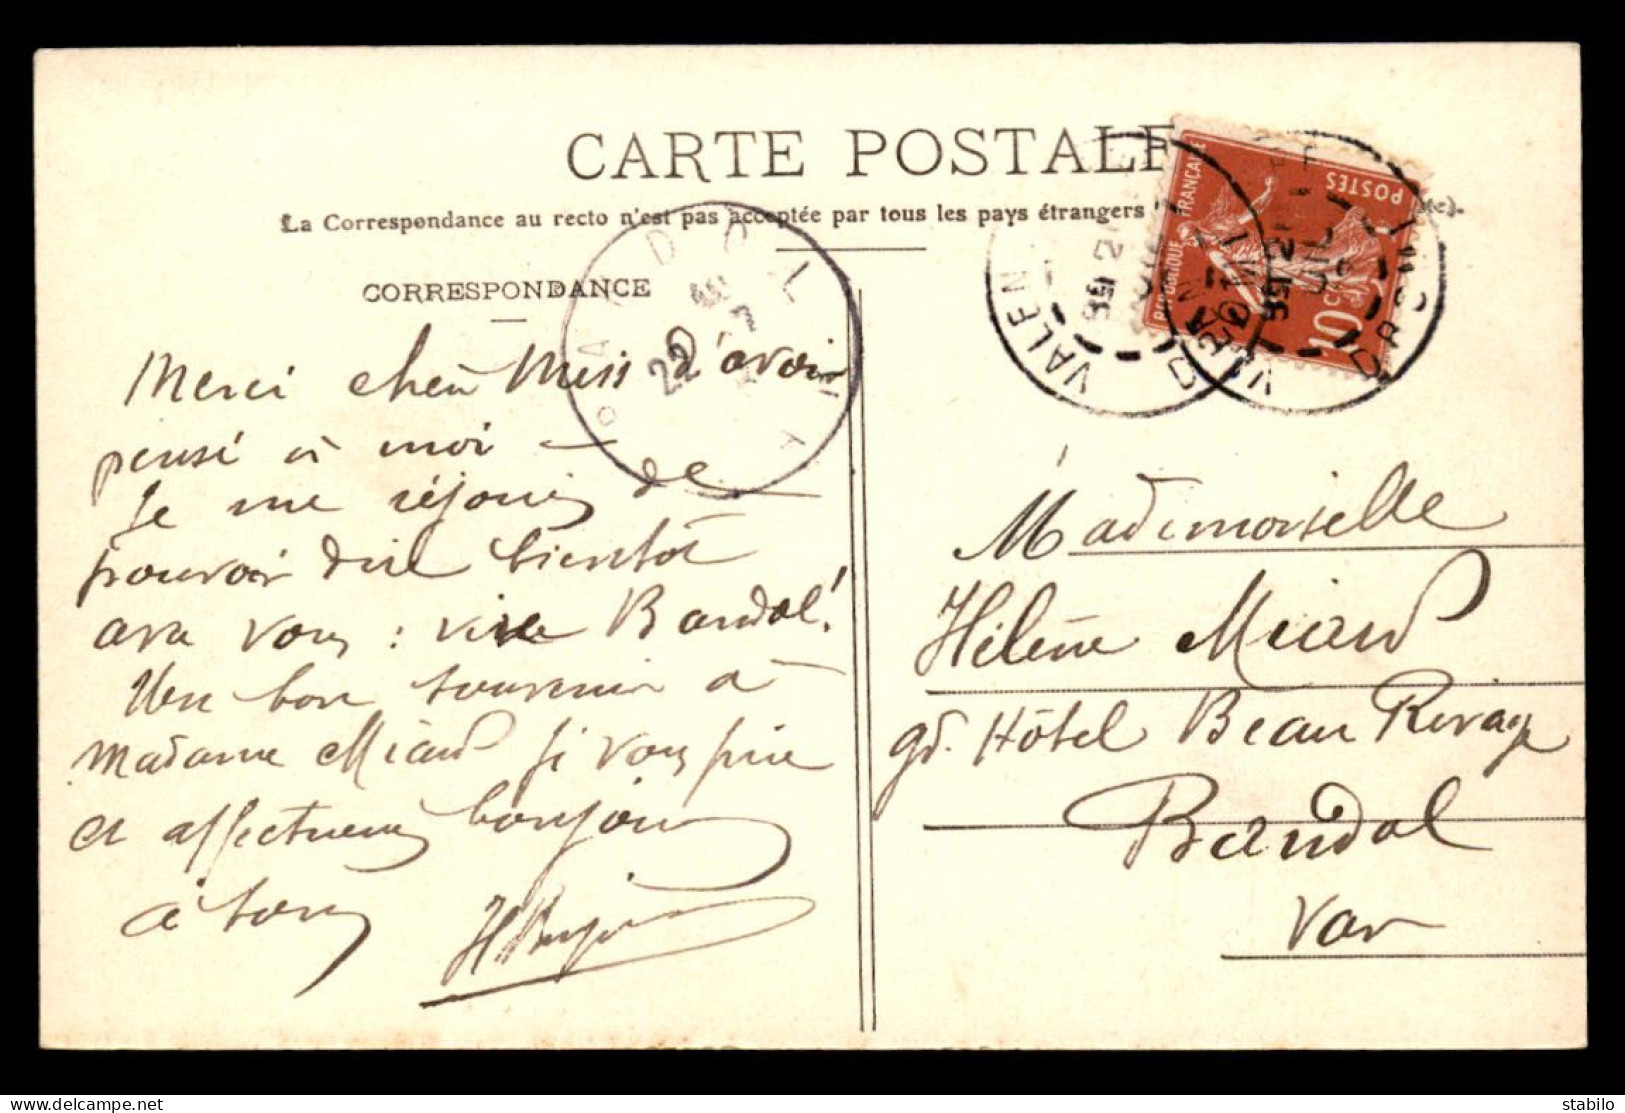 CARTE POSTALE
La Correspondance au recto n'est pas acceptée par tous les pays étrangers
CORRESPONDANCE
Merci chère Miss d'avoir
pensé à moi —
Je me réjouis de
pouvoir dire bientôt
avec vous : vive Bandol!
Un bon souvenir à
Madame Miard je vous prie
et affectueux bonjour
à tous
REPUBLIQUE FRANCAISE
POSTES
10 C
VALENCE
DROME
BANDOL
VAR
22
Mademoiselle
Hélène Miard
gd. Hôtel Beau Rivage
Bandol
Var
stabilo